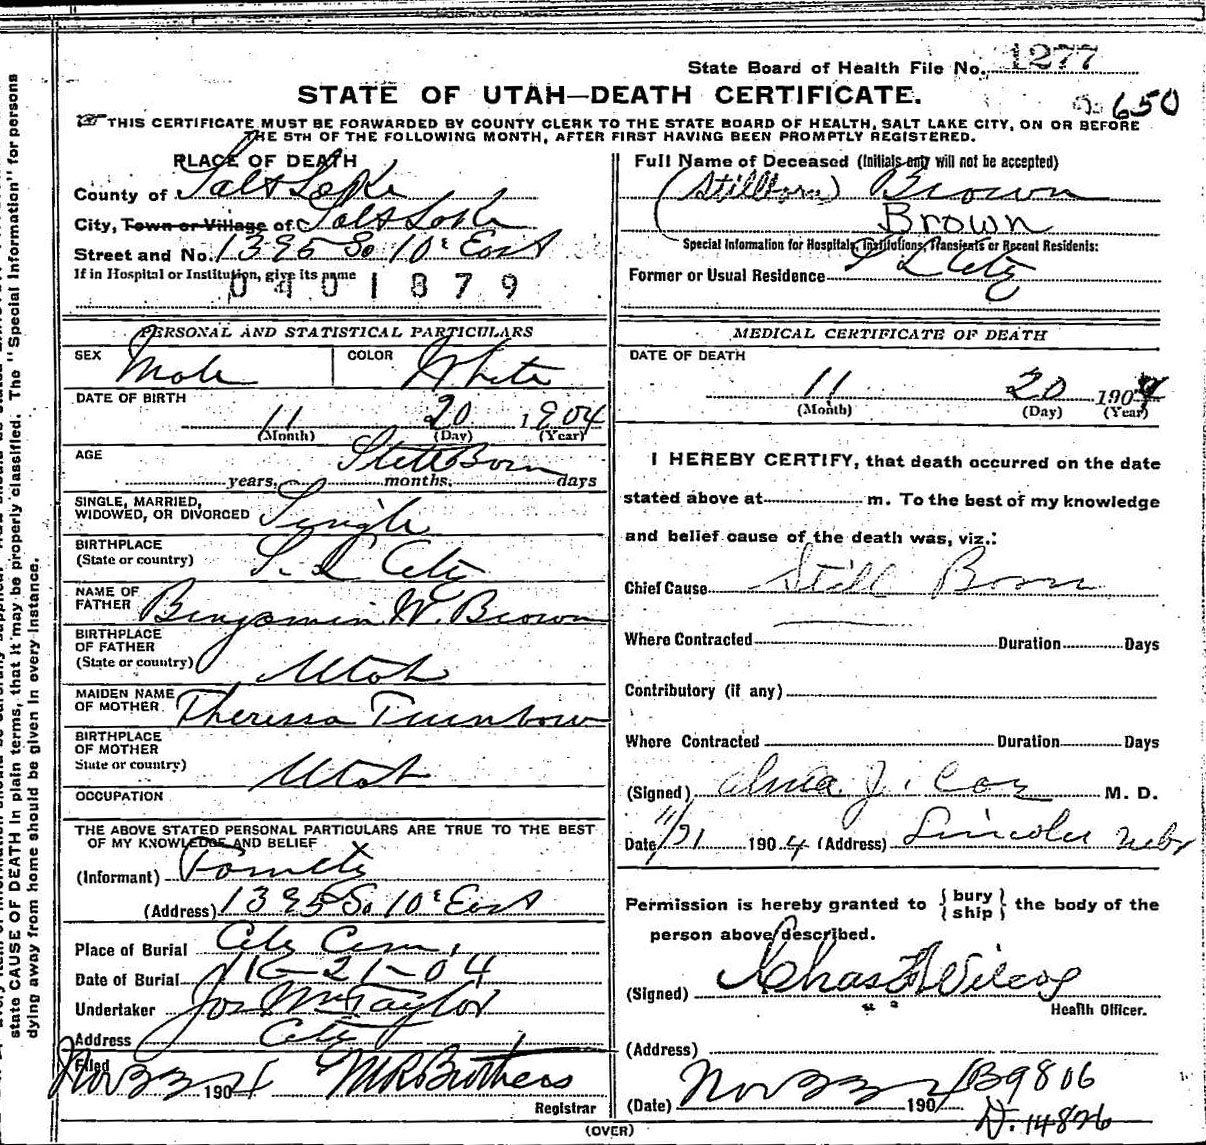 State Board of Health File No. 1277
STATE OF UTAH—DEATH CERTIFICATE.
650
THIS CERTIFICATE MUST BE FORWARDED BY COUNTY CLERK TO THE STATE BOARD OF HEALTH, SALT LAKE CITY, ON OR BEFORE
THE 5TH OF THE FOLLOWING MONTH, AFTER FIRST HAVING BEEN PROMPTLY REGISTERED.
PLACE OF DEATH
County of Salt Lake
City, Town or Village of Salt Lake
Street and No. 1395 So 10 East
If in Hospital or Institution, give its name
0401879
Full Name of Deceased (Initials only will not be accepted)
(Stillborn) Brown
Brown
Special Information for Hospitals, Institutions, Transients or Recent Residents:
Former or Usual Residence S L City
PERSONAL AND STATISTICAL PARTICULARS
SEX Male COLOR White
DATE OF BIRTH
11 20 1904
(Month) (Day) (Year)
AGE Still Born
years, months, days
SINGLE, MARRIED,
WIDOWED, OR DIVORCED Single
BIRTHPLACE
(State or country) S. L City
NAME OF
FATHER Benjamin W. Brown
BIRTHPLACE
OF FATHER
(State or country) Utah
MAIDEN NAME
OF MOTHER Theressa Turnbow
BIRTHPLACE
OF MOTHER
State or country) Utah
OCCUPATION
THE ABOVE STATED PERSONAL PARTICULARS ARE TRUE TO THE BEST
OF MY KNOWLEDGE AND BELIEF
(Informant) Family
(Address) 1395 So 10 East
Place of Burial City Cem.
Date of Burial 11-21-04
Undertaker Jos Wm Taylor
Address City
Filed Nov 1904
Registrar
MEDICAL CERTIFICATE OF DEATH
DATE OF DEATH
11 20 1904
(Month) (Day) (Year)
I HEREBY CERTIFY, that death occurred on the date
stated above at m. To the best of my knowledge
and belief cause of the death was, viz.:
Chief Cause Still Born
Where Contracted Duration Days
Contributory (if any)
Where Contracted Duration Days
(Signed) M. D.
Date 11/21 1904 (Address) Lincoln Nebr
Permission is hereby granted to { bury ship } the body of the
person above described.
(Signed) Chas Wilcox
Health Officer.
(Address)
(Date) Nov 1904 B9806
D. 14826
(OVER)
state CAUSE OF DEATH in plain terms, that it may be properly classified. The "Special Information" for persons
dying away from home should be given in every instance.